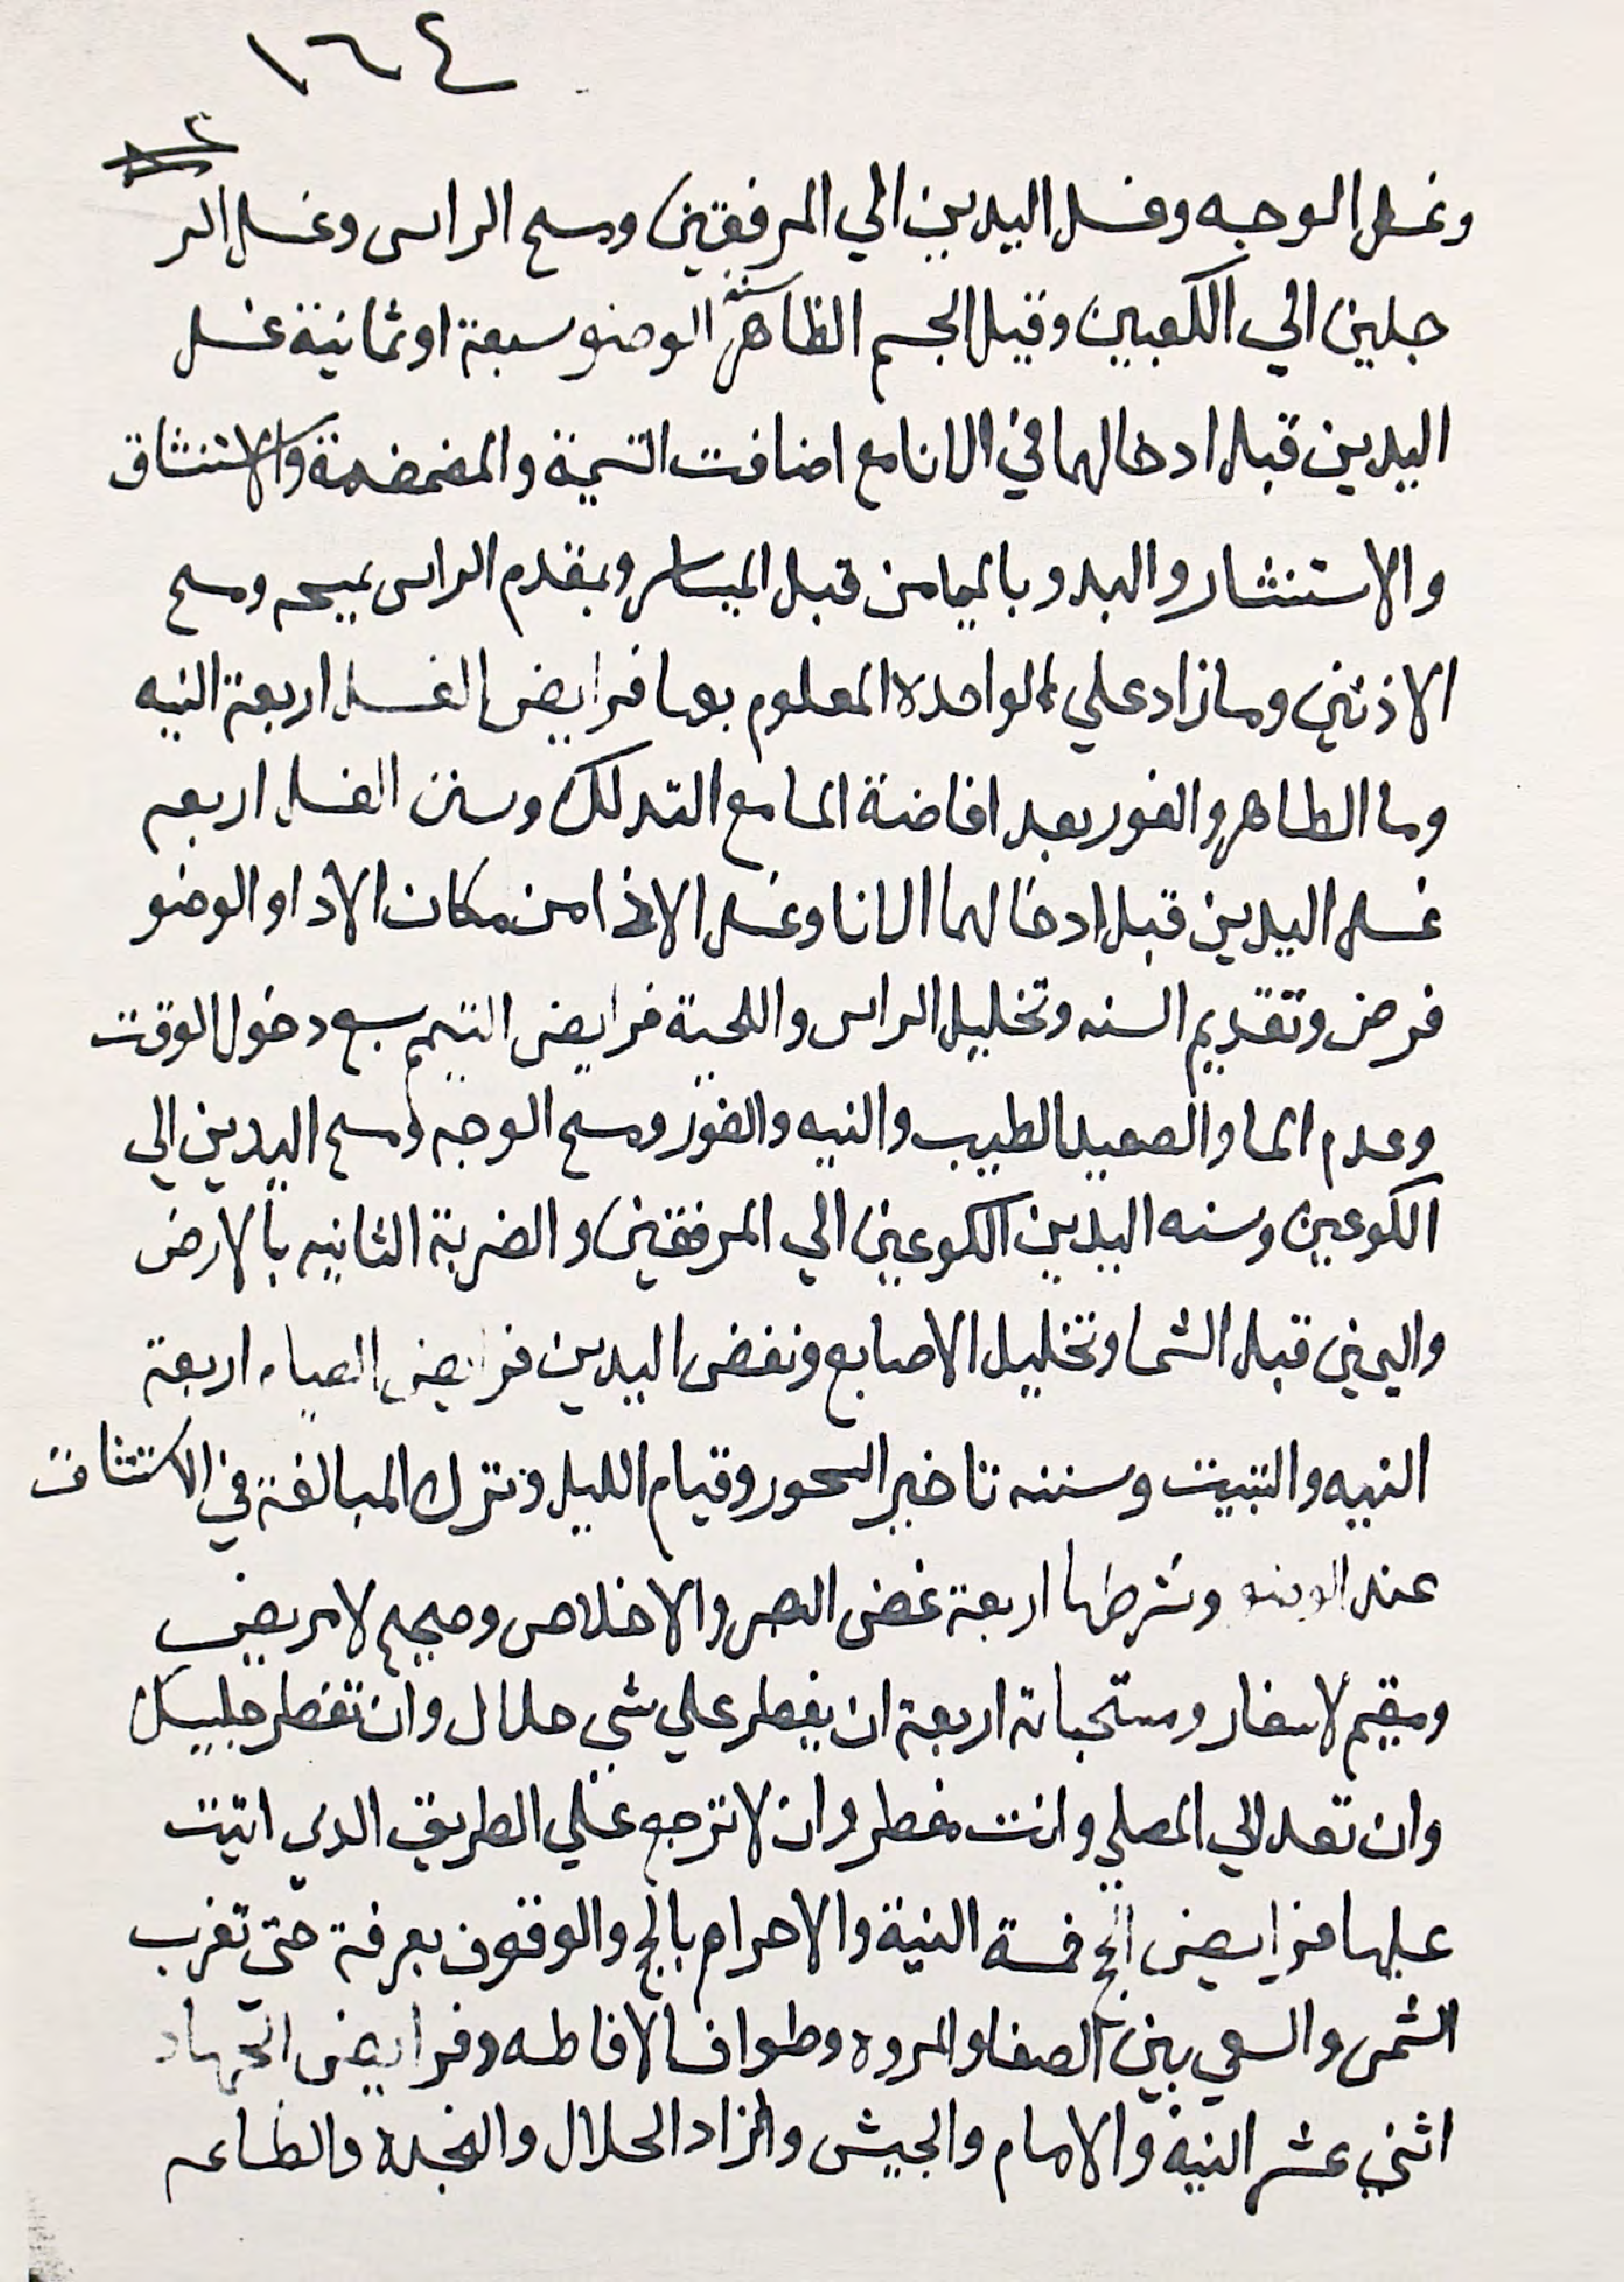 ١٦٤
٢
وغسل الوجه وغسل اليدين الي المرفقين ومسح الراس وغسل الر
جلين الي الكعبين وقيل الجسم الظاهر سنة الوضو سبعة او ثمانية غسل
اليدين قبل ادخالهما في الانا مع اضافت التسمية والمضمضة والاستنشاق
والاستنثار والبدو بالميامن قبل المياسر وبمقدم الراس يمسحه ومسح
الاذنين وما زاد علي الواحده المعلوم بها فرايض الغسل اربعة النيه
وما الطاهر والفور بعد افاضة الما مع التدلك وسنن الغسل اربعه
غسل اليدين قبل ادخالهما الانا وغسل الاذا من مكان الاذا والوضو
فرض وتقديم السنه وتخليل الراس واللحية فرايض التيمم سبع دخول الوقت
وعدم الما والصعيد الطيب والنيه والفور ومسح الوجه ومسح اليدين الي
الكوعين وسنه اليدين الكوعين الي المرفقين والضربة الثانيه بالارض
واليمين قبل الشما وتخليل الاصابع ونفض اليدين فرايض الصيام اربعة
النيه والتبييت وسننه تاخير السحور وقيام الليل وترك المبالغة في الاستنشاق
عند الوضو وشرطها اربعة غض البصر والاخلاص وصحيح لا مريض
ومقيم لا سفار ومستحباته اربعة ان يفطر علي شي حلال وان تفطر جليسك
وان تعد الي المصلي وانت مفطر وان لا ترجع علي الطريق الدي اتيت
عليها فرايض الحج خمسة النية والاحرام بالحج والوقوف بعرفة حتي تغرب
الشمس والسعي بين الصفا والمروه وطواف الافاطه وفرايض الجهاد
اثني عشر النية والامام والجيش والزاد الحلال والنجدة والطاعه